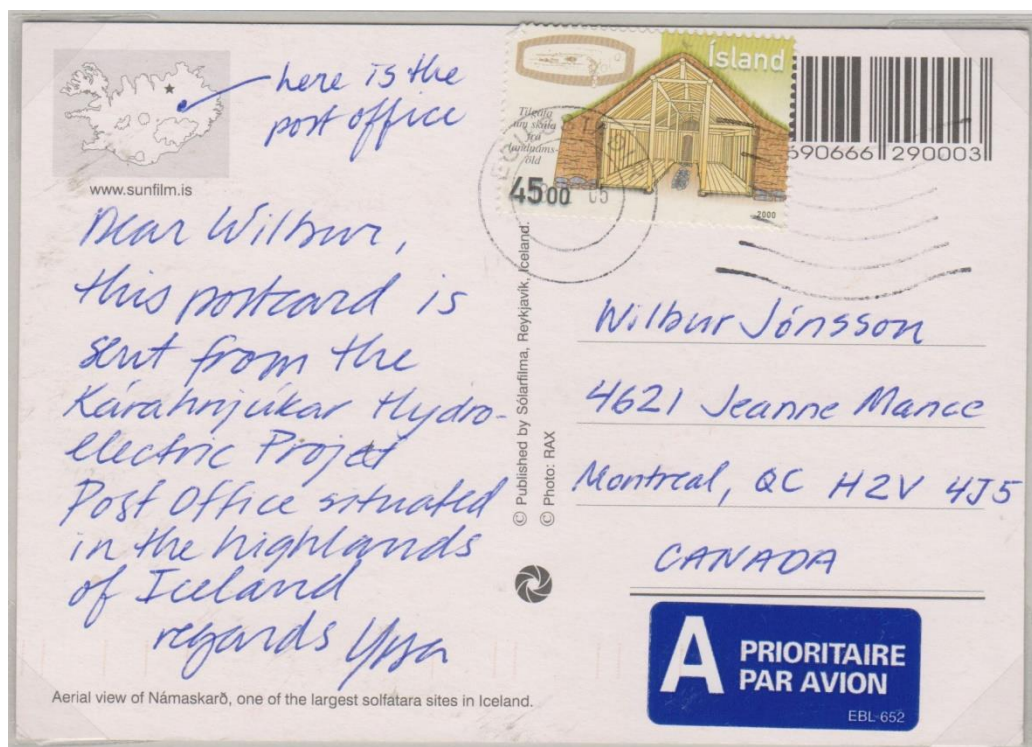 here is the
post office
www.sunfilm.is
Dear Wilbur,
this postcard is
sent from the
Kárahnjúkar Hydro-
electric Project
Post Office situated
in the highlands
of Iceland
regards
Aerial view of Námaskarð, one of the largest solfatara sites in Iceland.
© Published by Sólarfilma, Reykjavik, Iceland.
© Photo: RAX
Ísland
Tilgáta
um skála
frá
landnáms-
öld
4500
2000
05
690666 290003
Wilbur Jónsson
4621 Jeanne Mance
Montreal, QC H2V 4J5
CANADA
A PRIORITAIRE
PAR AVION
EBL-652